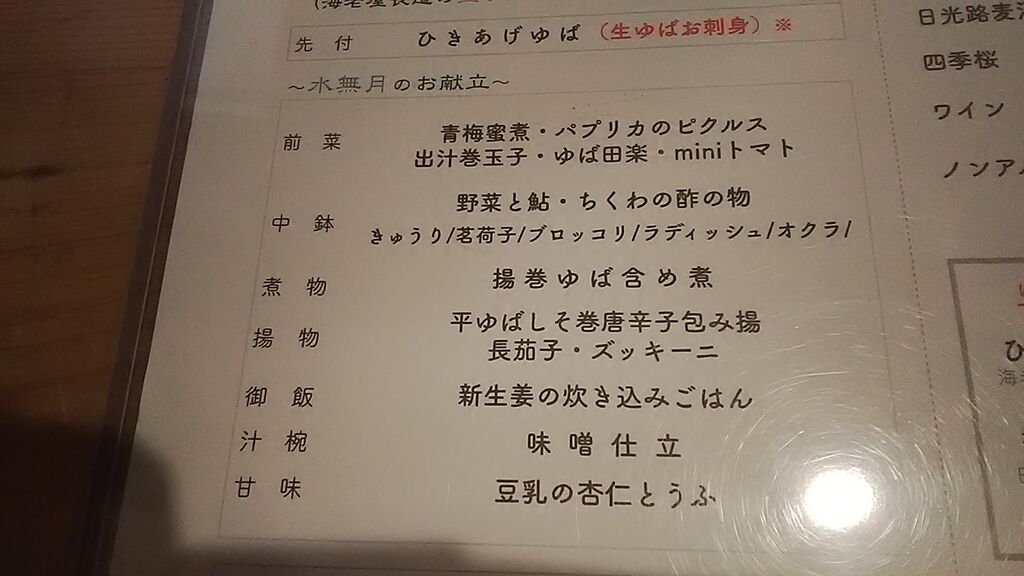 先付 ひきあげゆば (生ゆばお刺身) ※
～水無月のお献立～
前菜 青梅蜜煮・パプリカのピクルス
出汁巻玉子・ゆば田楽・miniトマト
中鉢 野菜と鮎・ちくわの酢の物
きゅうり/茗荷子/ブロッコリ/ラディッシュ/オクラ/
煮物 揚巻ゆば含め煮
揚物 平ゆばしそ巻唐辛子包み揚
長茄子・ズッキーニ
御飯 新生姜の炊き込みごはん
汁椀 味噌仕立
甘味 豆乳の杏仁とうふ
日光路麦
四季桜
ワイン
ノンア
ひ
海